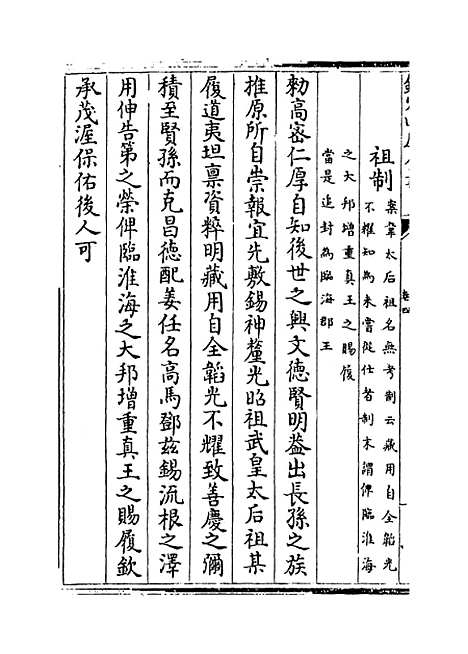 祖制
案韋太后祖名無考制云藏用自全韜光
不耀知為未嘗從仕者制末謂俾臨淮海
之大邦增重真王之賜履
當是追封為臨海郡王
勅高密仁厚自知後世之興文德賢明葢出長孫之族
推原所自崇報宜先敷錫神釐光昭祖武皇太后祖某
履道夷坦禀資粹明藏用自全韜光不耀致善慶之彌
積至賢孫而克昌徳配姜任名高馬鄧兹錫流根之澤
用伸告第之榮俾臨淮海之大邦増重真王之賜履欽
承茂渥保佑後人可